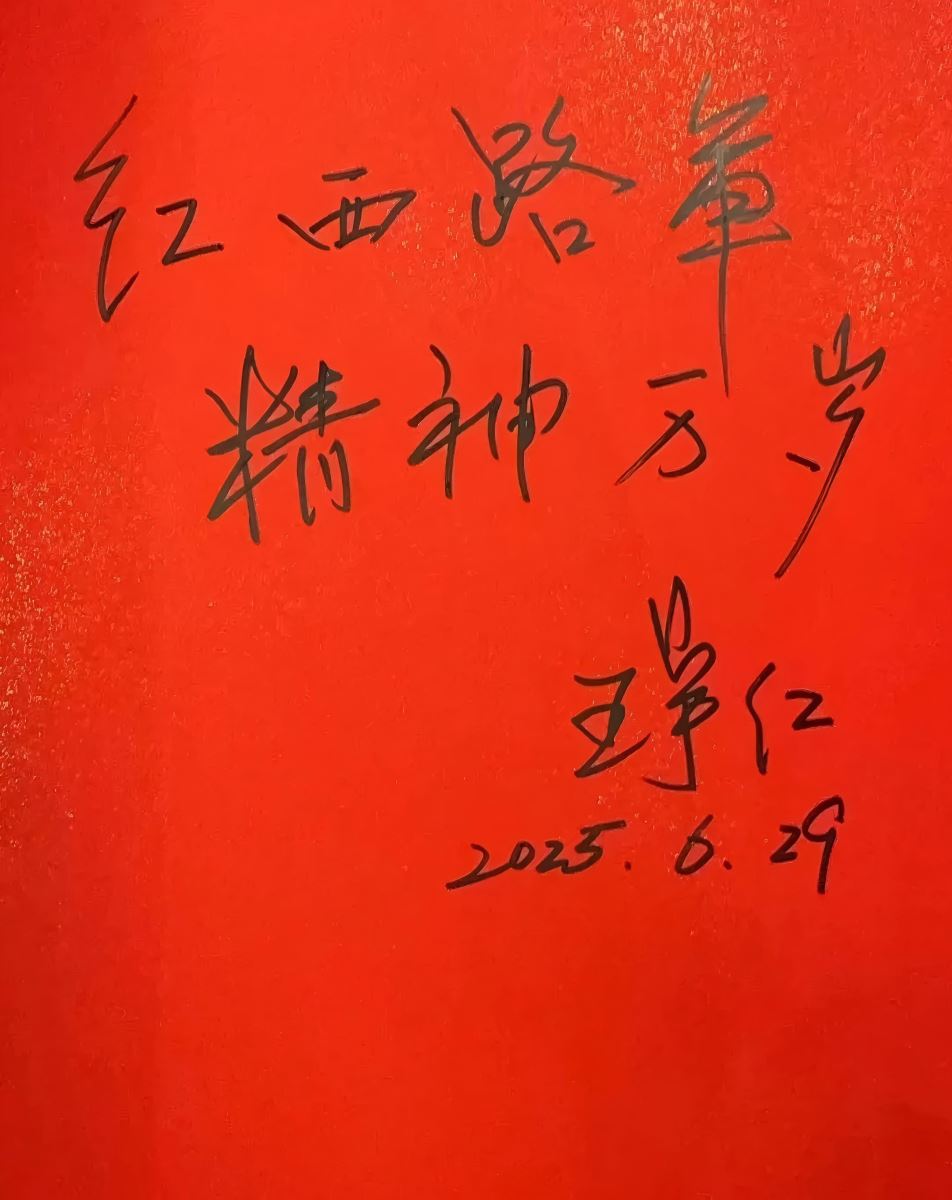 红西路军
精神万岁
王 仁
2025.6.29